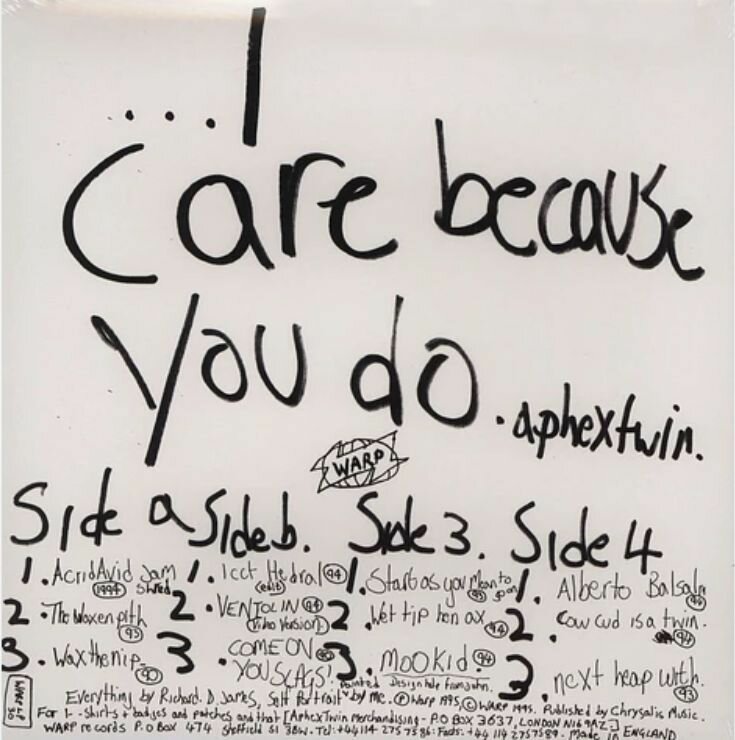 ...I
Care because
you do. aphex twin.
WARP
Side a Side b. Side 3. Side 4
1. Acrid Avid Jam Shred (1994)
2. The Waxen pith (93)
3. Wax the nip. (90)
1. Icct Hedral (94) (edit)
2. VENTOLIN (94) (Video Version)
3. COME ON YOU SLAGS! (90)
1. Start as you Mean to go on (93)
2. Wet tip hen ax. (94)
3. MOOKid. (94)
1. Alberto Balsalm (94)
2. Cow cud is a twin. (94)
3. next heap with. (93)
WARP LP 30
Everything by Richard. D. James, Self Portrait painted by me. Design help from John. Ⓟ Warp 1995, Ⓒ WARP 1995. Published by Chrysalis Music.
For T-Shirts + badges and patches and that [Aphex Twin Merchandising - P.O BOX 3637, LONDON N16 9AZ]
WARP records P.O Box 474 Sheffield S1 3BW. Tel: +44 114 275 7586: Facts: +44 114 2757589. Made in ENGLAND